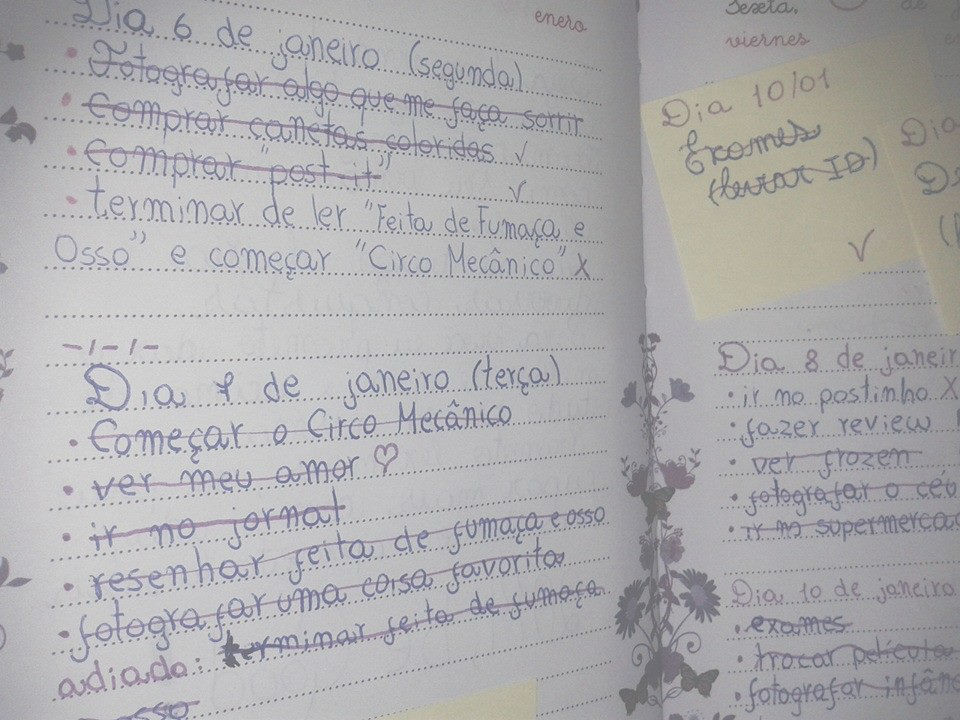 enero
Dia 6 de janeiro (segunda)
• Fotografar algo que me faça sorrir
• Comprar canetas coloridas √
• Comprar "post-it" √
• terminar de ler "Feita de Fumaça e
Osso" e começar "Circo Mecânico" X
-/-/-
Dia 7 de janeiro (terça)
• Começar o Circo Mecânico
• ver meu amor ♡
• ir no jornal
• resenhar feita de fumaça e osso
• fotografar uma coisa favorita
adiada: terminar feita de fumaça
osso
Sexta,
viernes
Dia 10/01
Exames
(levar ID)
√
Dia 8 de janeir
• ir no postinho X
• fazer review
• ver frozen
• fotografar o céu
• ir no supermercad
Dia 10 de janeiro
• exames
• trocar película
• fotografar infânc